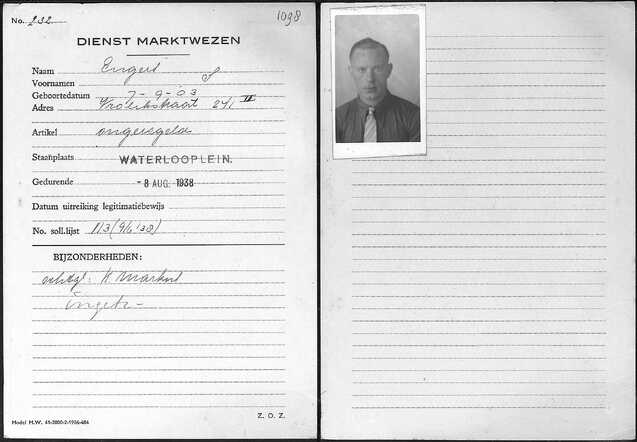 No. 232
1098
DIENST MARKTWEZEN
Naam Engers
Voornamen S
Geboortedatum 7-9-03
Adres 241 III
Artikel ongeregelde
Staanplaats WATERLOOPLEIN.
Gedurende - 8 AUG. 1938
Datum uitreiking legitimatiebewijs
No. soll.lijst 113 (9/6 '38)
BIJZONDERHEDEN:
Z. O. Z.
Model M.W. 41-3800-2-1936-684